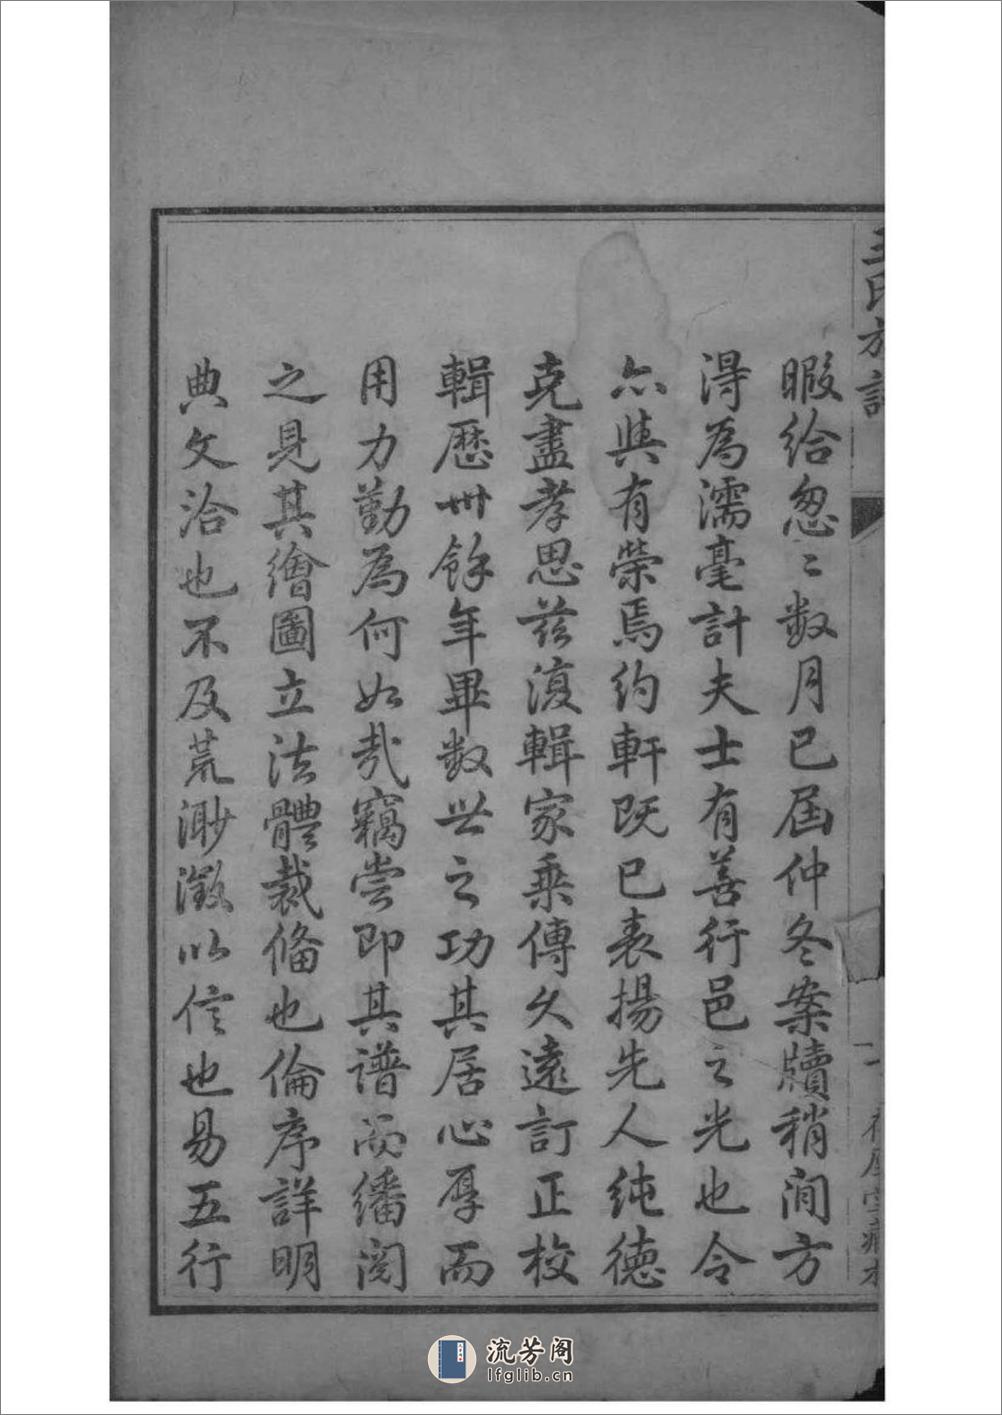 王氏族譜
暇給怱〻數月已屆仲冬案牘稍閒方
得為濡毫計夫士有善行邑之光也令
亦與有榮焉約軒既已表揚先人純德
克盡孝思茲復輯家乘傳久遠訂正校
輯歷卅餘年畢數世之功其居心厚而
用力勤為何如哉竊嘗即其譜而繙閱
之見其繪圖立法體裁備也倫序詳明
典文洽也不及荒渺徵以信也易五行
流芳阁
lfglib.cn